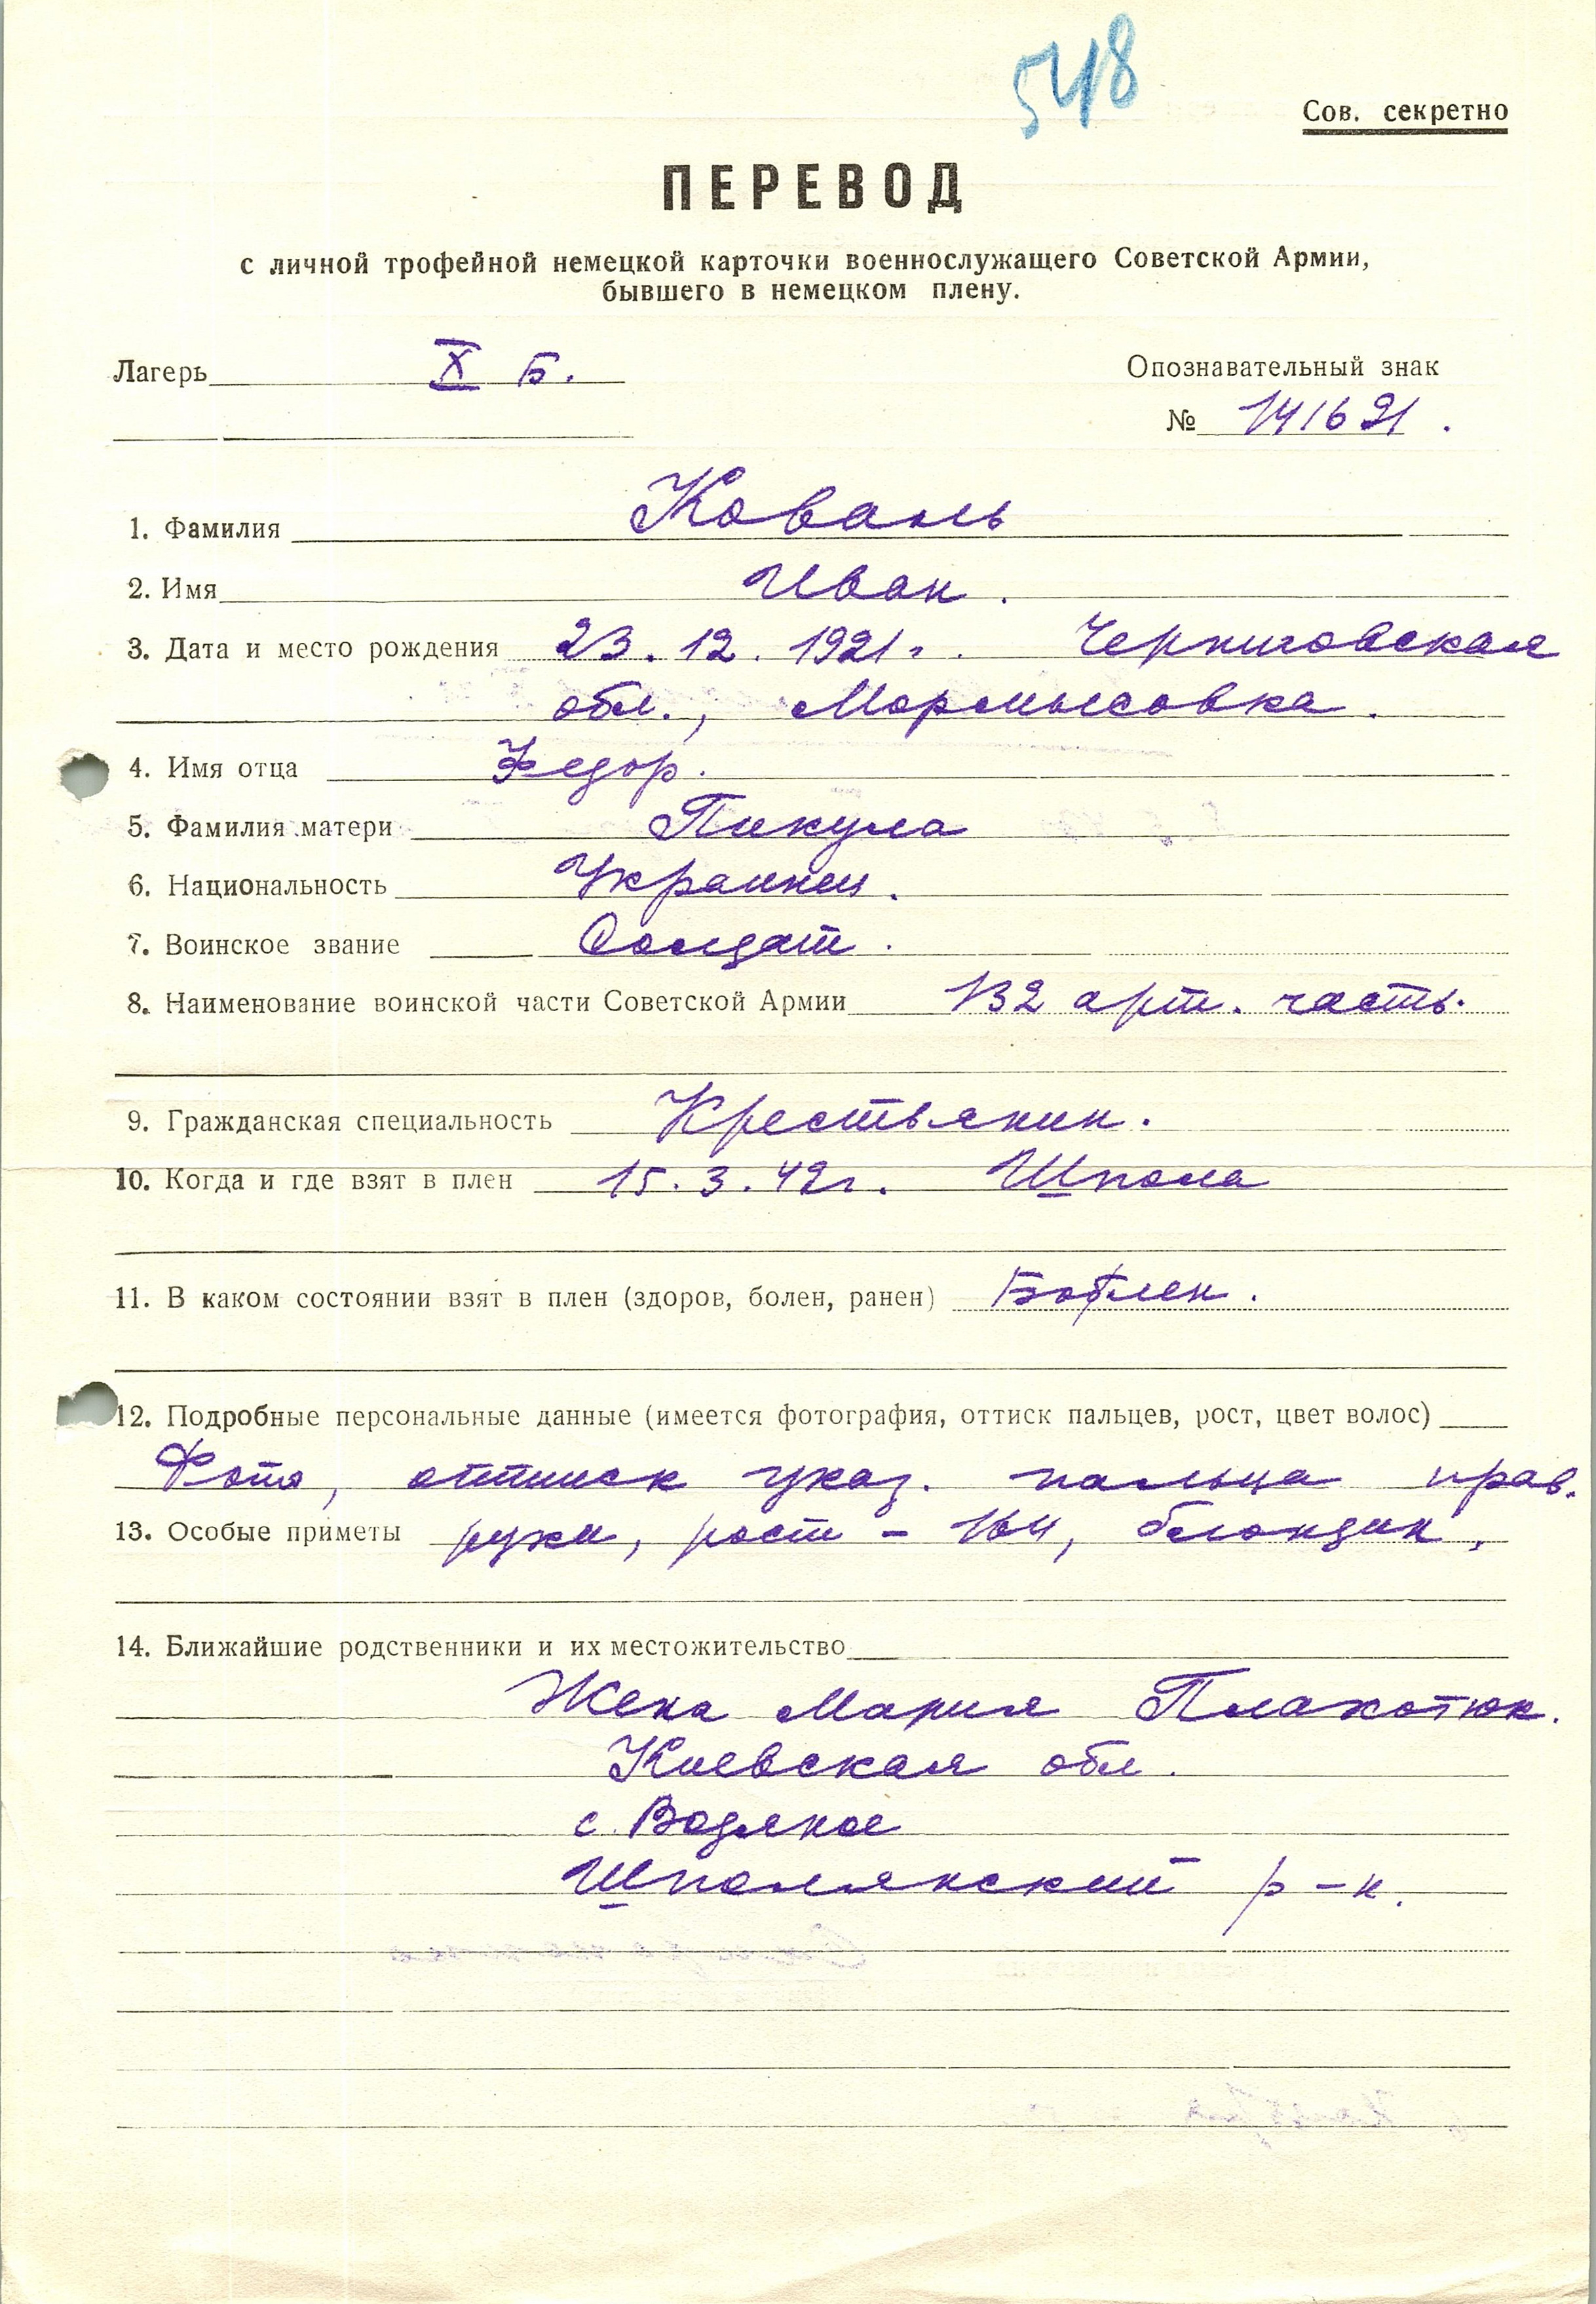 548
Сов. секретно
ПЕРЕВОД
с личной трофейной немецкой карточки военнослужащего Советской Армии,
бывшего в немецком плену.
Лагерь X Б.
Опознавательный знак
№ 141621.
1. Фамилия Коваль
2. Имя Иван.
3. Дата и место рождения 23.12.1921г. Черниговская
обл., Мормысовка.
4. Имя отца Федор.
5. Фамилия матери Пикула
6. Национальность Украинец.
7. Воинское звание Солдат.
8. Наименование воинской части Советской Армии 132 арт. часть.
9. Гражданская специальность Крестьянин.
10. Когда и где взят в плен 15.3.42г. Шпола
11. В каком состоянии взят в плен (здоров, болен, ранен)
12. Подробные персональные данные (имеется фотография, оттиск пальцев, рост, цвет волос)
Фото, оттиск указ. пальца прав.
13. Особые приметы руки, рост - 164, блондин.
14. Ближайшие родственники и их местожительство
Жена Мария Плахотюк.
Киевская обл.
с. Водяное
Шполянский р-н.